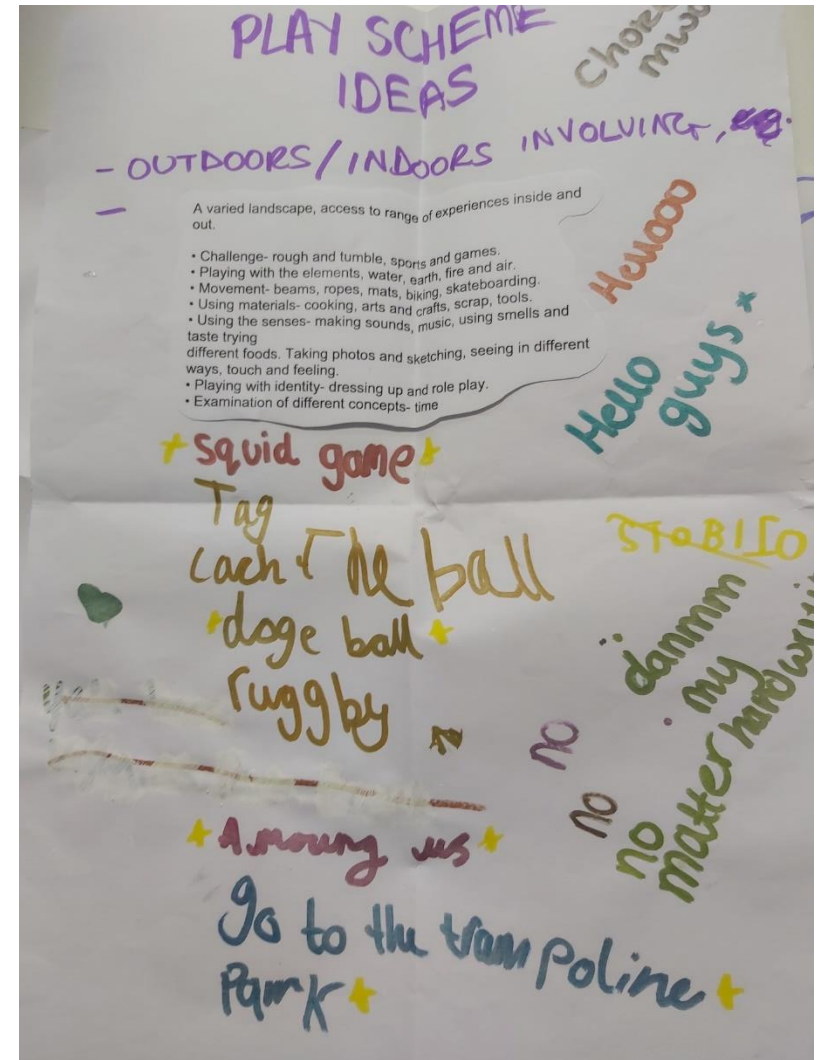 PLAY SCHEME
IDEAS
- OUTDOORS/INDOORS INVOLVING,
-
A varied landscape, access to range of experiences inside and
out.
• Challenge- rough and tumble, sports and games.
• Playing with the elements, water, earth, fire and air.
• Movement- beams, ropes, mats, biking, skateboarding.
• Using materials- cooking, arts and crafts, scrap, tools.
• Using the senses- making sounds, music, using smells and
taste trying
different foods. Taking photos and sketching, seeing in different
ways, touch and feeling.
• Playing with identity- dressing up and role play.
• Examination of different concepts- time
Hellooo
Hello
guys
squid game
Tag
cach the ball
doge ball
ruggby
Amoung us
go to the trampoline
Park
no
no
no
matter
my